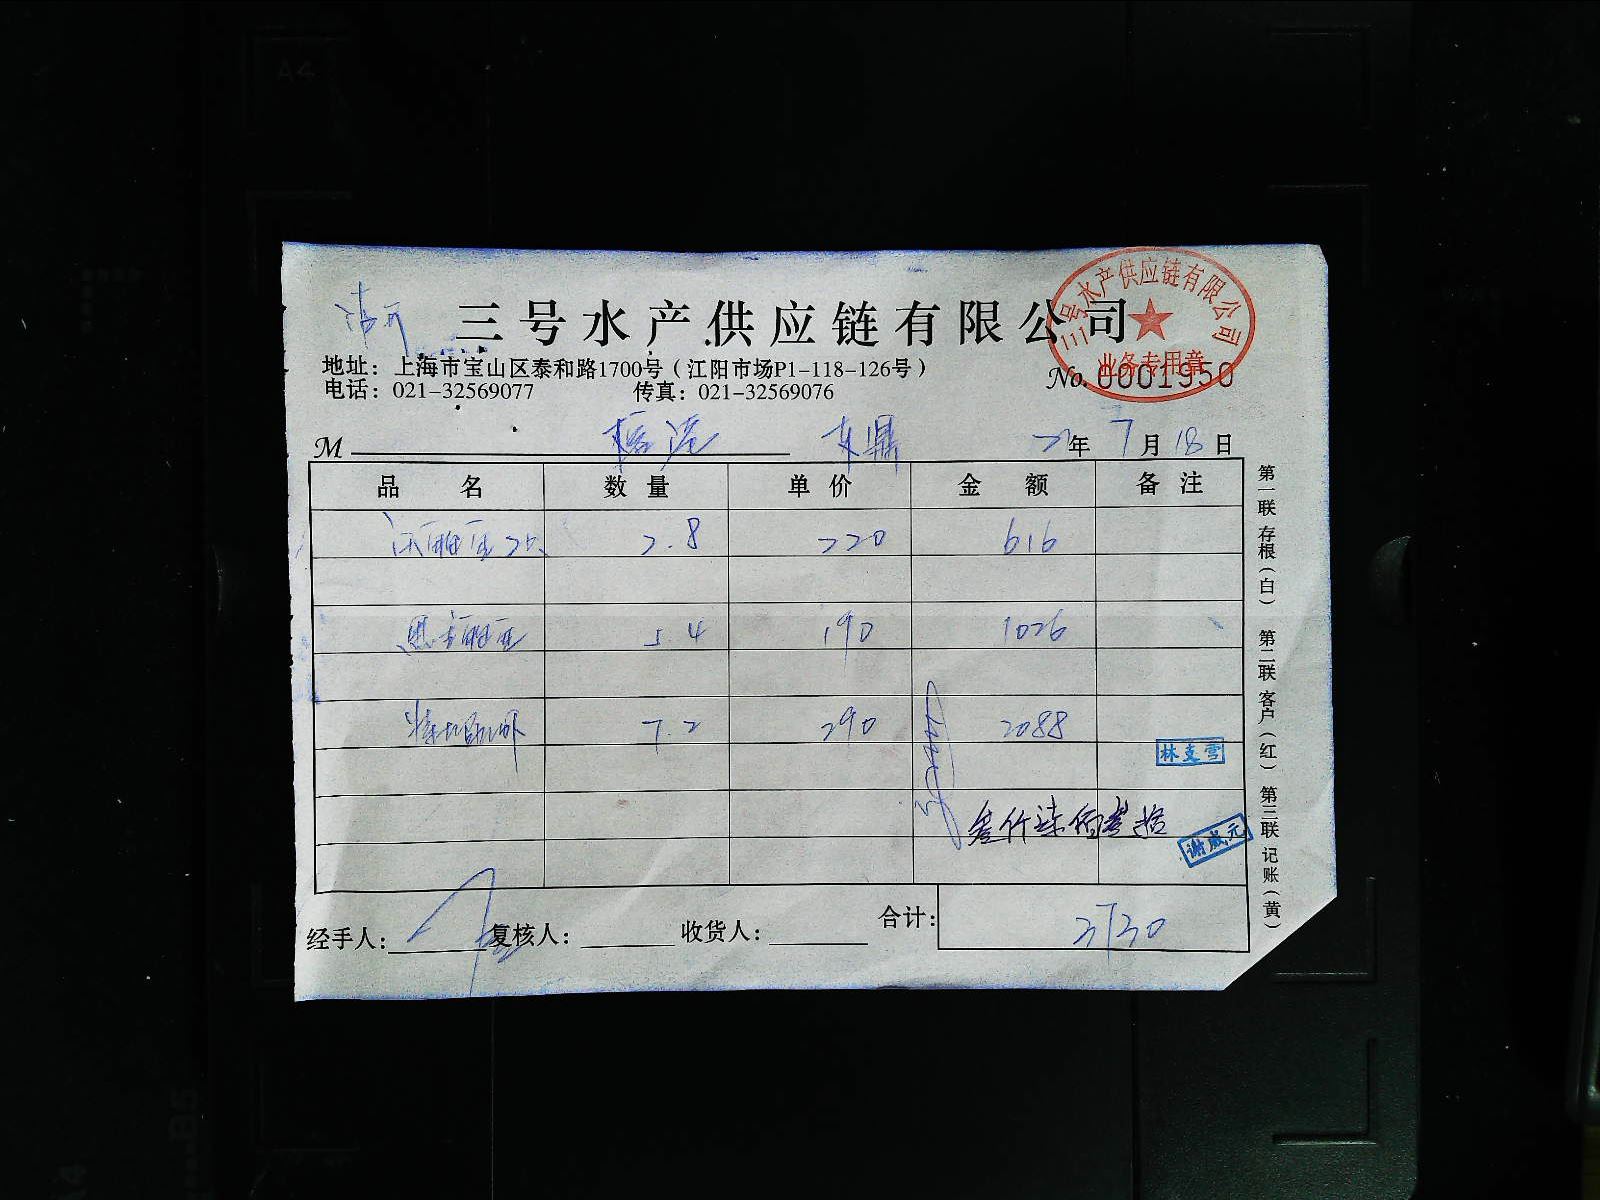 三号水产供应链有限公司
三号水产供应链有限公司
业务专用章
地址：上海市宝山区泰和路1700号（江阳市场P1-118-126号）
No. 0001950
电话：021-32569077 传真：021-32569076
M 年 7 月 18 日
品名 数量 单价 金额 备注
2.8 220 616
5.4 190 1026
7.2 290 2088
林支雪
叁仟柒佰叁拾
谢成元
第一联 存根（白） 第二联 客户（红） 第三联 记账（黄）
经手人： 复核人： 收货人： 合计： 3730